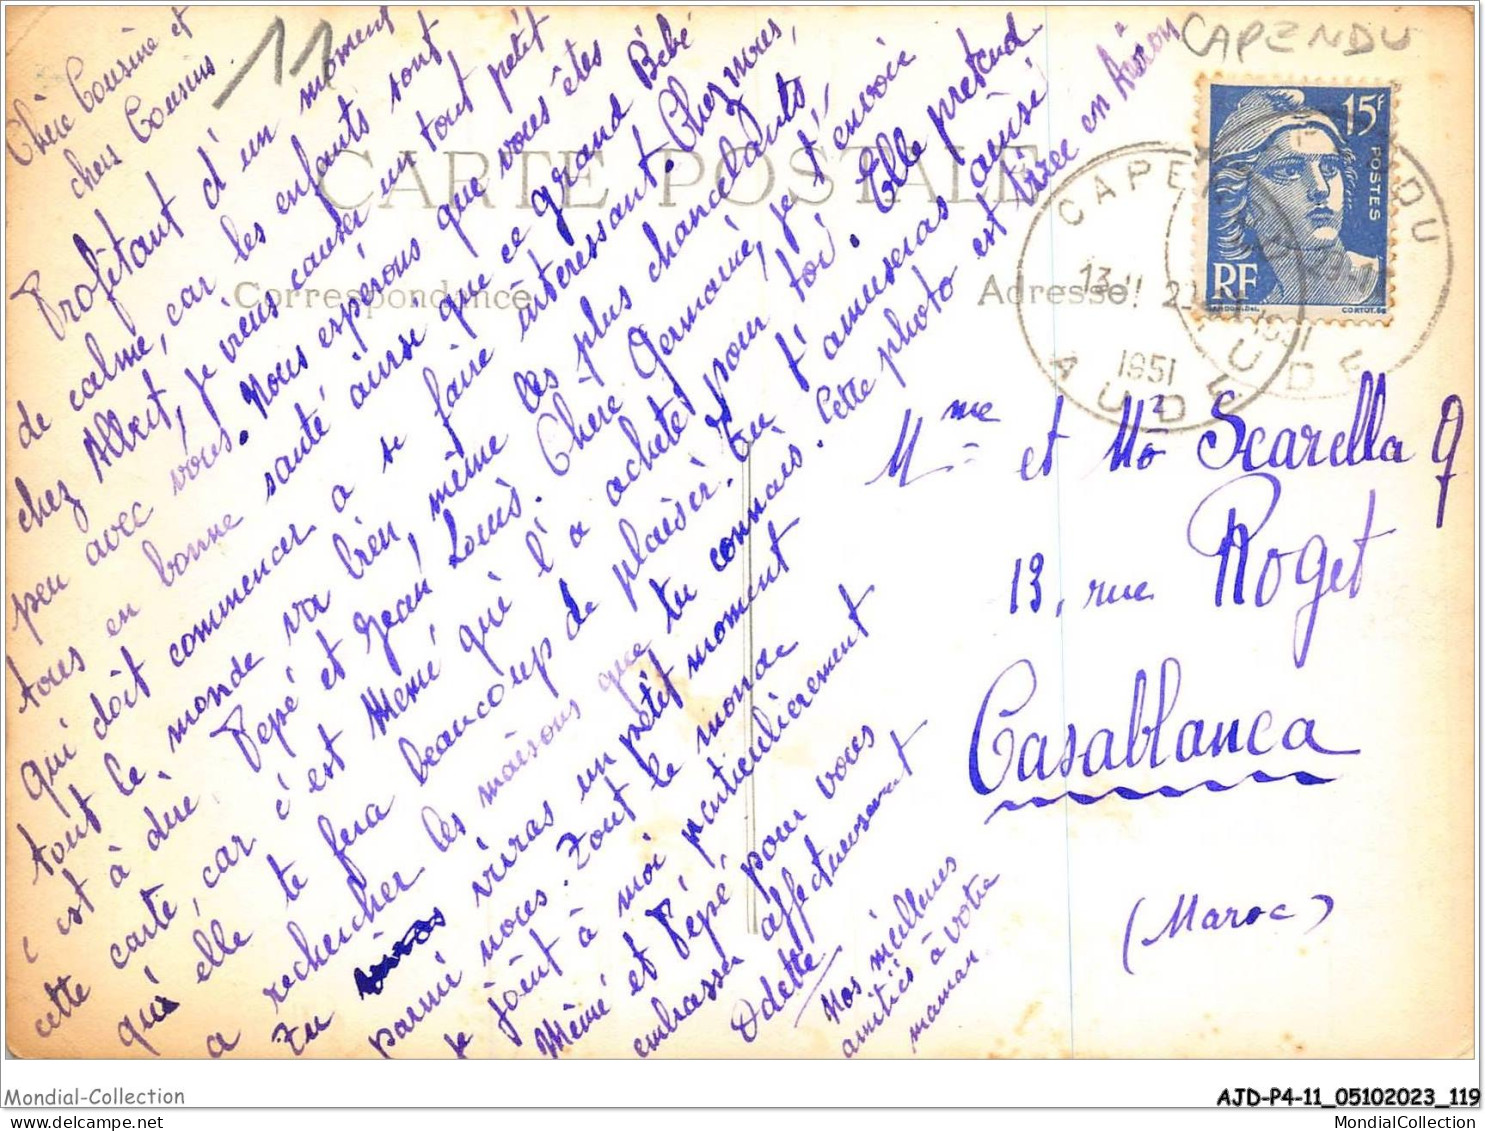 Chère Cousine et
chers Cousins.
11
Profitant d'un moment
de calme, car les enfants sont
chez Albert, je viens causer un tout petit
peu avec vous. Nous espérons que vous êtes
tous en bonne santé ainsi que ce grand Bébé
qui doit commencer a se faire intéressant. Chez nous,
tout le monde va bien, même les plus chancelants,
c'est à dire Pepé et Jean Louis. Chère Germaine, je t'envoie
cette carte, car c'est Memé qui l'a acheté pour toi. Elle prétend
qu'elle te fera beaucoup de plaisir. Tu t'amuseras aussi
a rechercher les maisons que tu connais. Cette photo est tirée en Avion
Tu viras un petit moment
parmi nous. Tout le monde
se joint à moi particulièrement
Mémé et Pépé pour vous
embrasser affectueusement
Odette
Nos meilleures
amitiés à votre
maman.
CARTE POSTALE
Correspondance
Adresse
CAPENDU
15F
POSTES
RF
GANDON.DEL
CORTOT.SC
CAPENDU
13-11
1951
AUDE
Mme et Mr Scarella
13, rue Roget
Casablanca
(Maroc)
Mondial-Collection
AJD-P4-11_05102023_119
MondialCollection